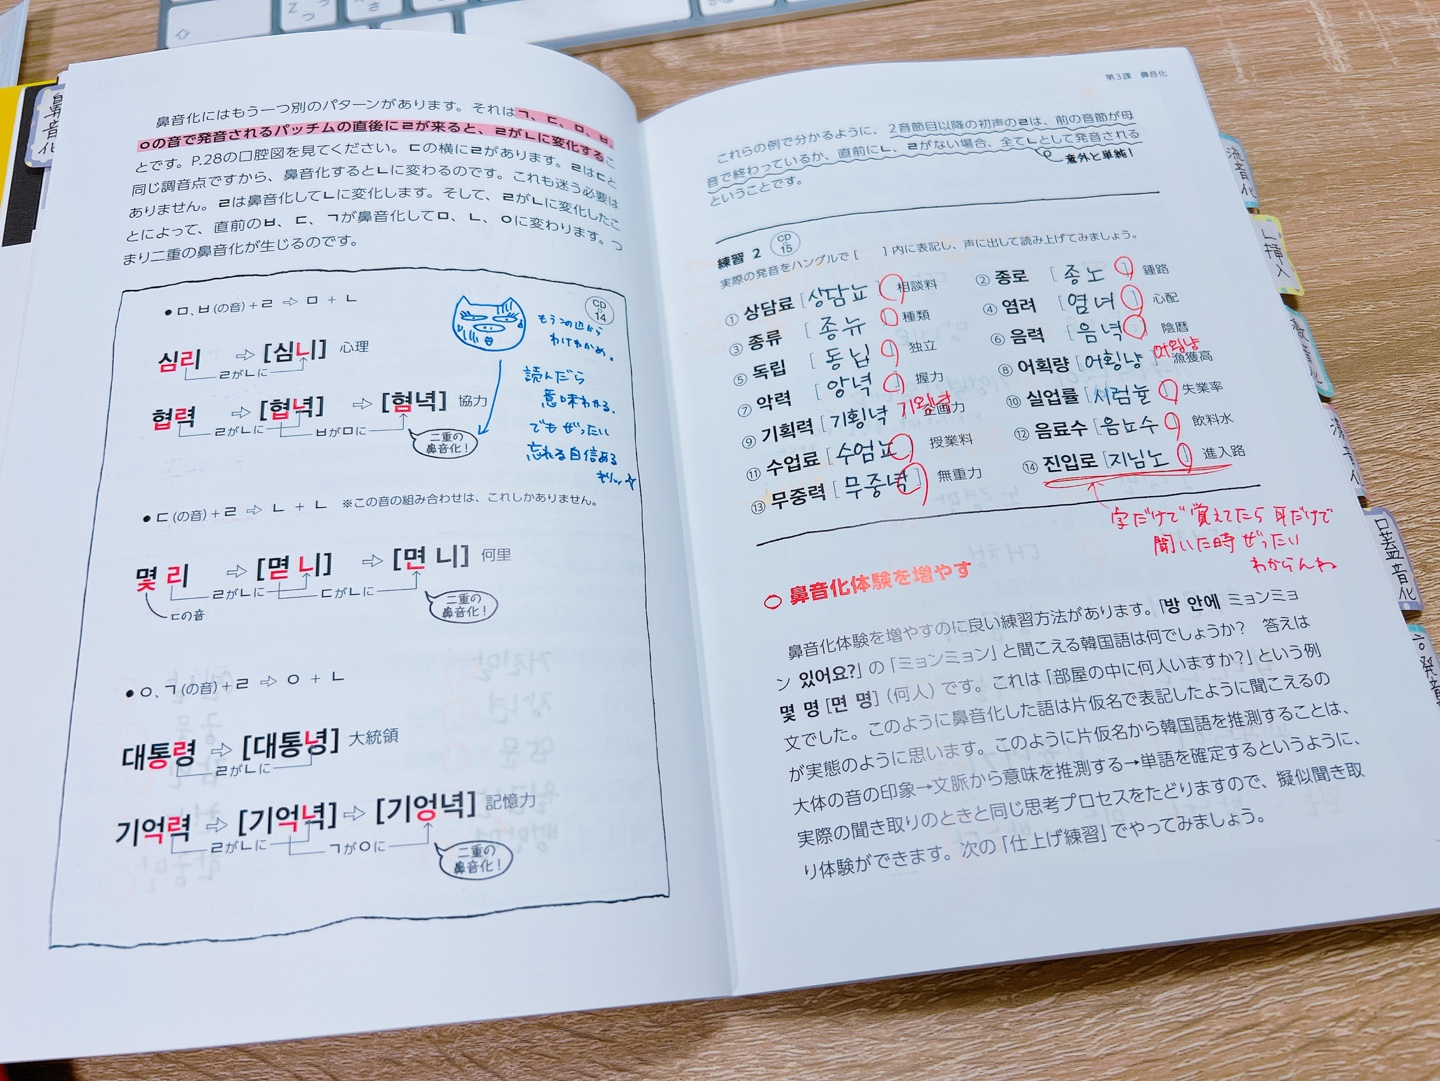 鼻音化
鼻音化にはもう一つ別のパターンがあります。それはㄱ、ㄷ、ㅁ、ㅂ、
ㅇの音で発音されるパッチムの直後にㄹが来ると、ㄹがㄴに変化するこ
とです。P.28の口腔図を見てください。ㄷの横にㄹがあります。ㄹはㄷと
同じ調音点ですから、鼻音化するとㄴに変わるのです。これも迷う必要は
ありません。ㄹは鼻音化してㄴに変化します。そして、ㄹがㄴに変化したこ
とによって、直前のㅂ、ㄷ、ㄱが鼻音化してㅁ、ㄴ、ㅇに変わります。つ
まり二重の鼻音化が生じるのです。
●ㅁ,ㅂ(の音)+ㄹ ⇨ ㅁ + ㄴ
CD 14
심리 ⇨ [심니] 心理
ㄹがㄴに
협력 ⇨ [협녁] ⇨ [혐녁] 協力
ㄹがㄴに ㅂがㅁに
二重の
鼻音化!
もうこの辺から
わけわかめ。
読んだら
意味わかる。
でもぜったい
忘れる自信ある
●ㄷ(の音)+ㄹ ⇨ ㄴ + ㄴ ※この音の組み合わせは、これしかありません。
몇 리 ⇨ [멷 니] ⇨ [면 니] 何里
ㄹがㄴに ㄷがㄴに
ㄷの音
二重の
鼻音化!
●ㅇ,ㄱ(の音)+ㄹ ⇨ ㅇ + ㄴ
대통령 ⇨ [대통녕] 大統領
ㄹがㄴに
기억력 ⇨ [기억녁] ⇨ [기엉녁] 記憶力
ㄹがㄴに ㄱがㅇに
二重の
鼻音化!
第3課 鼻音化
これらの例で分かるように、2音節目以降の初声のㄹは、前の音節が母
音で終わっているか、直前にㄴ、ㄹがない場合、全てㄴとして発音される
ということです。
意外と単純!
練習 2 CD 15
実際の発音をハングルで [ ] 内に表記し、声に出して読み上げてみましょう。
① 상담료 [상담뇨] 相談料 ② 종로 [종노] 鍾路
③ 종류 [종뉴] 種類 ④ 염려 [염녀] 心配
⑤ 독립 [동닙] 独立 ⑥ 음력 [음녁] 陰暦
⑦ 악력 [앙녁] 握力 ⑧ 어획량 [어횡냥] 어왱냥 漁獲高
⑨ 기획력 [기횡녁] 企画力 ⑩ 실업률 [시럼눌] 失業率
⑪ 수업료 [수엄뇨] 授業料 ⑫ 음료수 [음뇨수] 飲料水
⑬ 무중력 [무중녁] 無重力 ⑭ 진입로 [지님노] 進入路
字だけで覚えてたら耳だけで
聞いた時ぜったい
わからんね
○ 鼻音化体験を増やす
鼻音化体験を増やすのに良い練習方法があります。「방 안에 ミョンミョ
ン 있어요?」の「ミョンミョン」と聞こえる韓国語は何でしょうか? 答えは
몇 명 [면 명] (何人) です。これは「部屋の中に何人いますか?」という例
文でした。このように鼻音化した語は片仮名で表記したように聞こえるの
が実態のように思います。このように片仮名から韓国語を推測することは、
大体の音の印象→文脈から意味を推測する→単語を確定するというように、
実際の聞き取りのときと同じ思考プロセスをたどりますので、擬似聞き取
り体験ができます。次の「仕上げ練習」でやってみましょう。
流音化
ㄴ挿入
口蓋音化